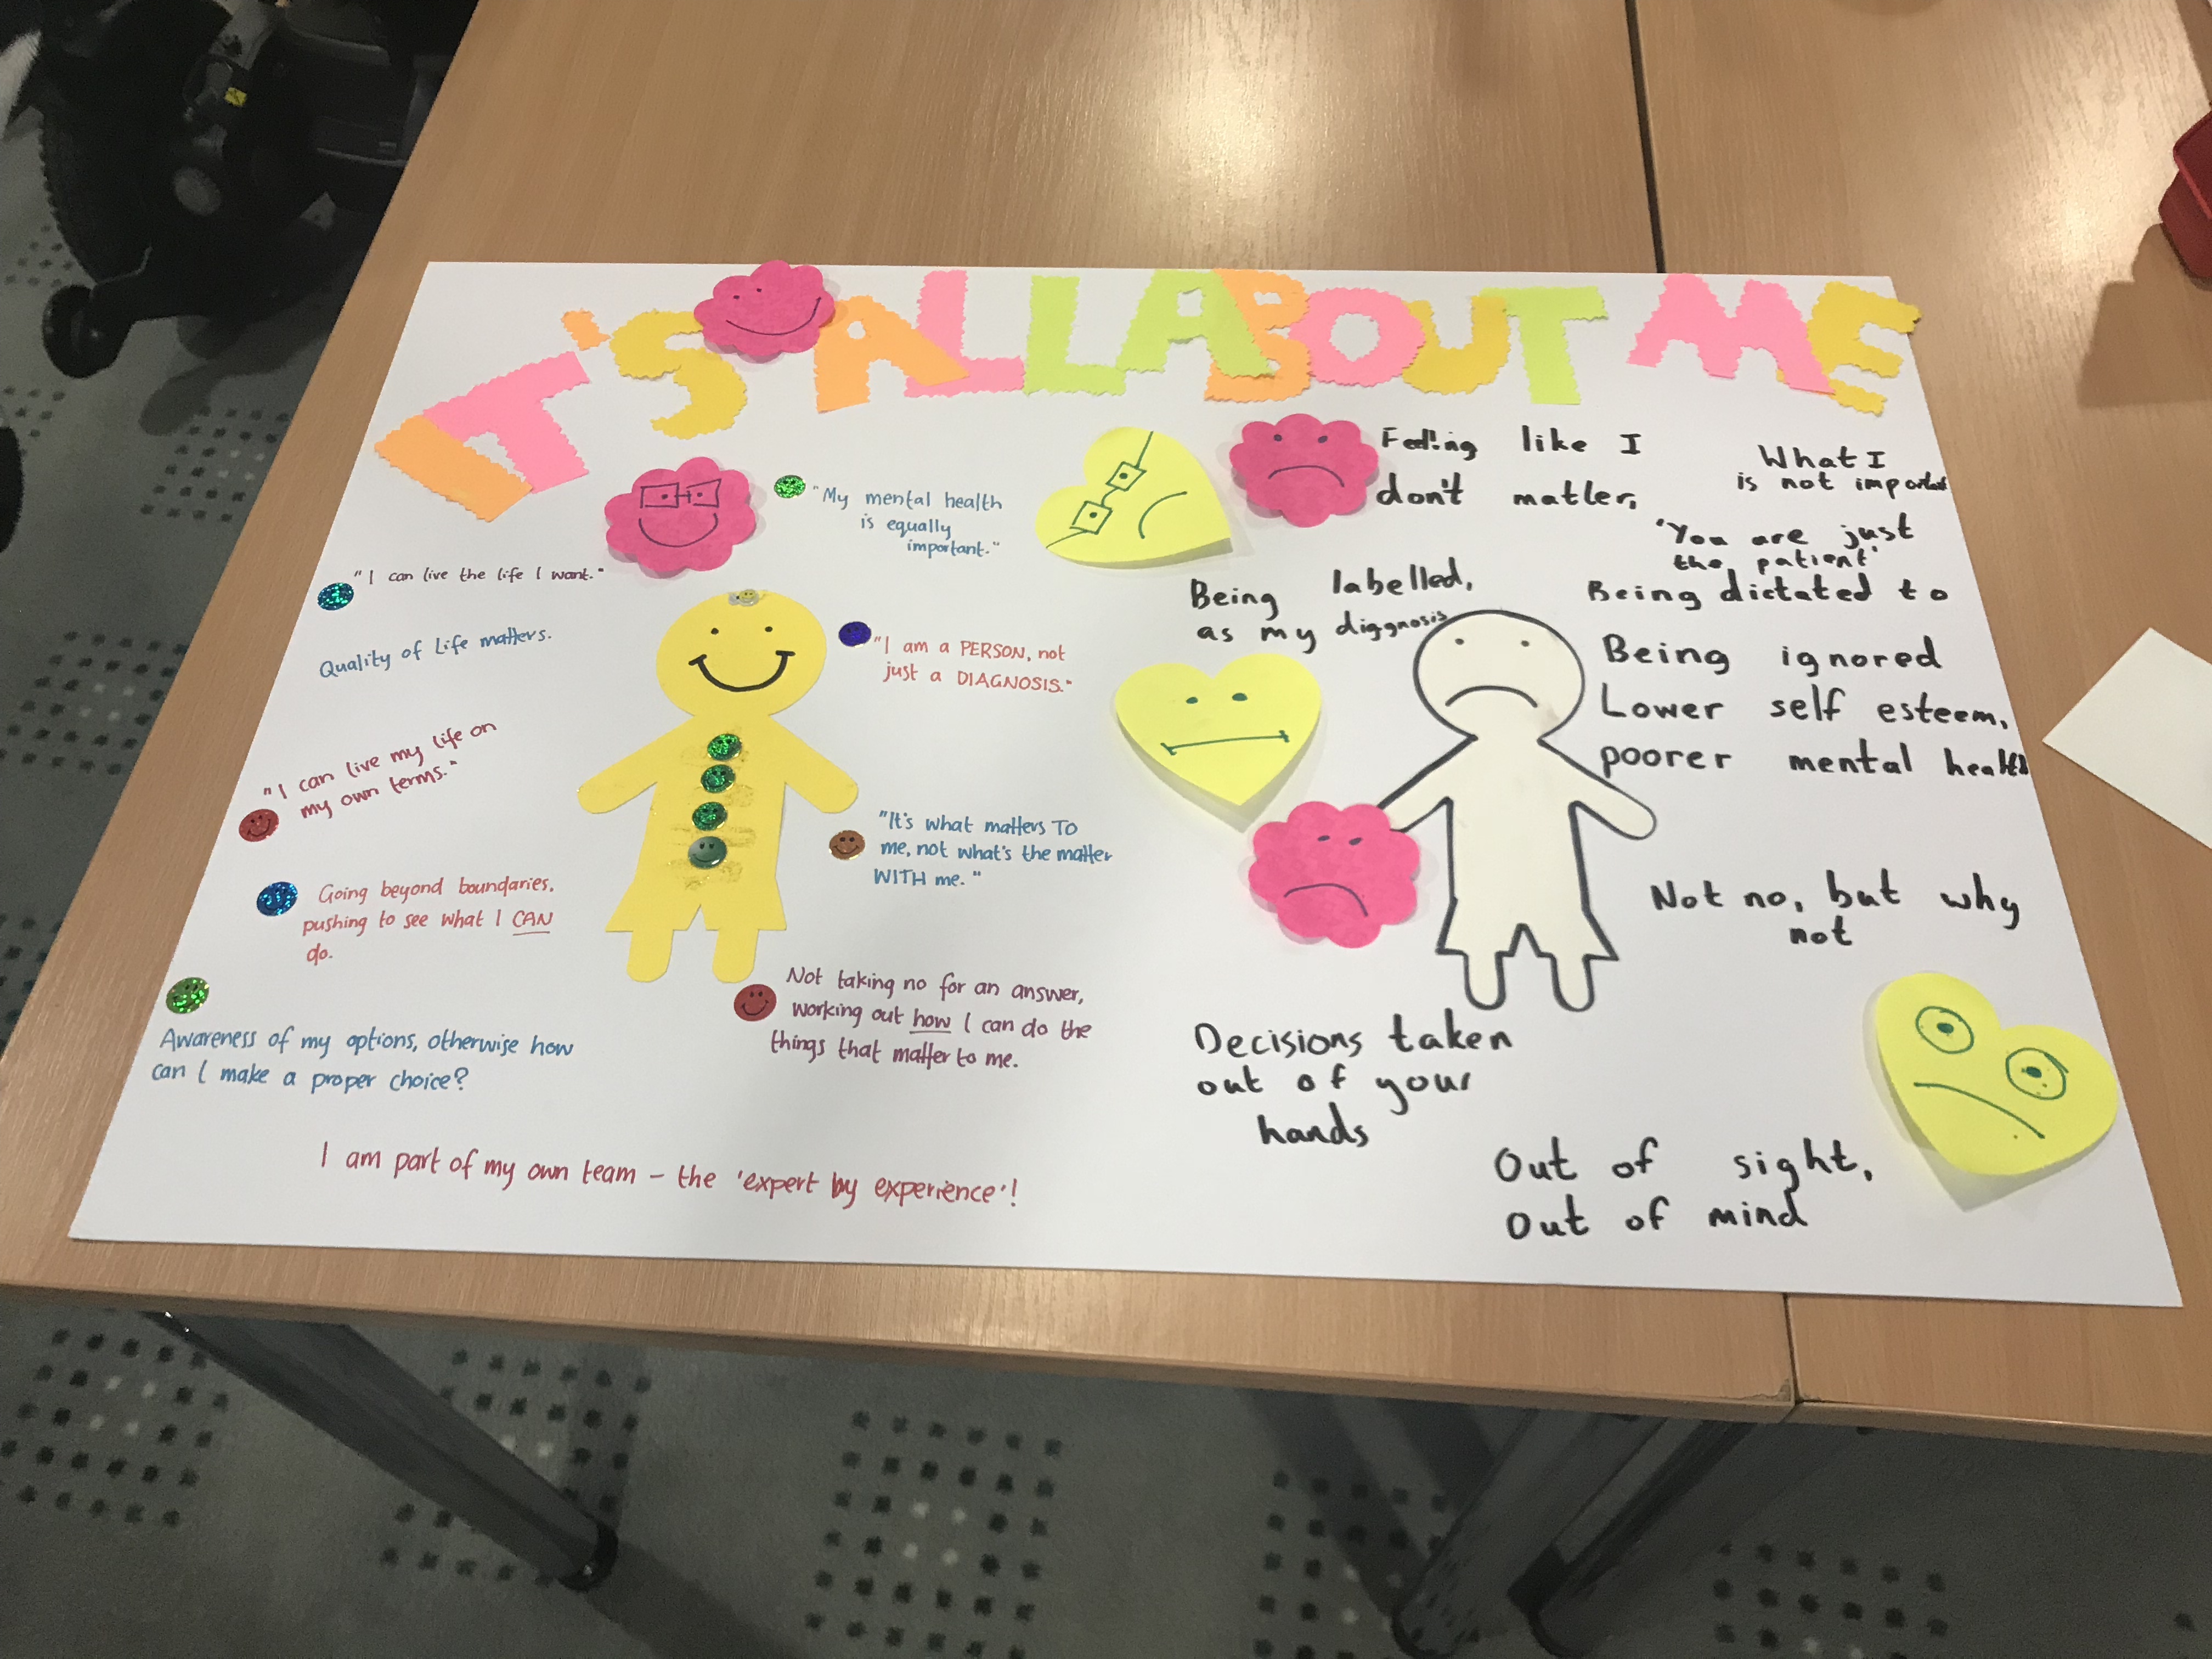 IT'S ALL ABOUT ME
"My mental health
is equally
important."
"I can live the life I want."
Quality of Life matters.
"I am a PERSON, not
just a DIAGNOSIS."
"I can live my life on
my own terms."
"It's what matters TO
me, not what's the matter
WITH me."
Going beyond boundaries,
pushing to see what I CAN
do.
Not taking no for an answer,
working out how I can do the
things that matter to me.
Awareness of my options, otherwise how
can I make a proper choice?
I am part of my own team - the 'expert by experience'!
Feeling like I
don't matter,
What I
is not important
'You are just
the patient'
Being labelled,
as my diagnosis
Being dictated to
Being ignored
Lower self esteem,
poorer mental health
Not no, but why
not
Decisions taken
out of your
hands
Out of sight,
Out of mind